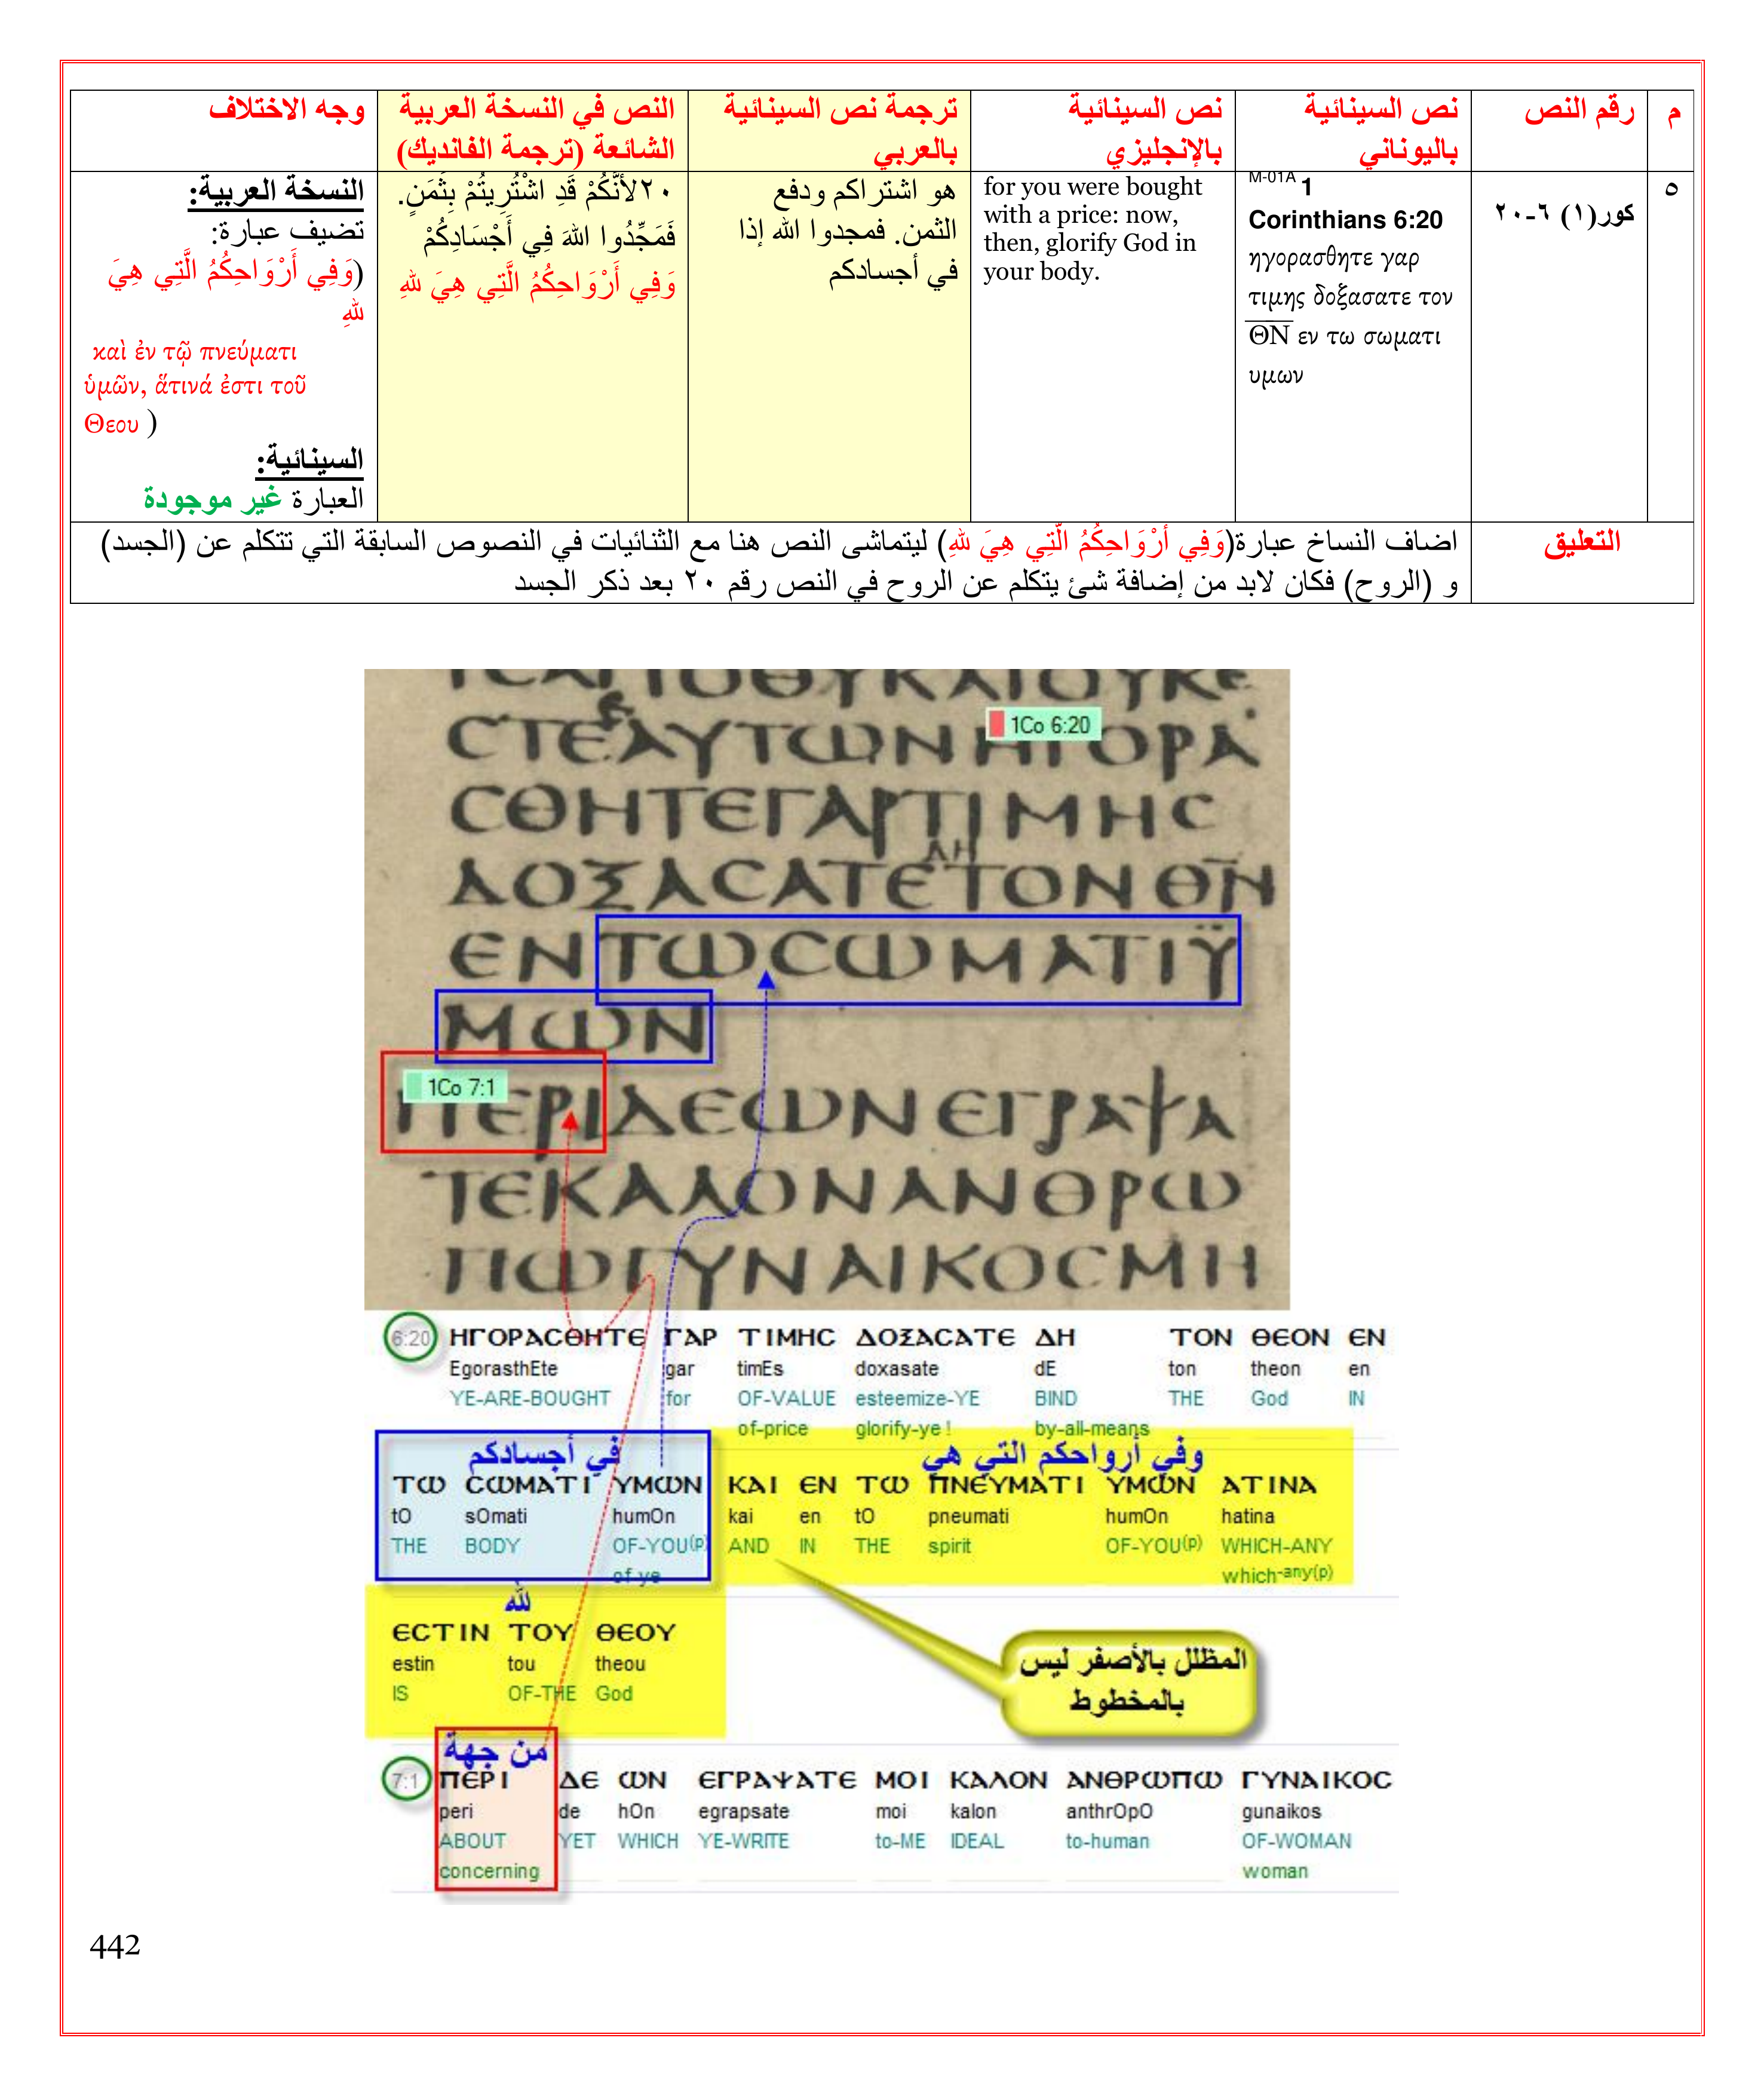 م
رقم النص
نص السينائية
باليوناني
نص السينائية
بالإنجليزي
ترجمة نص السينائية
بالعربي
النص في النسخة العربية
الشائعة (ترجمة الفانديك)
وجه الاختلاف
٥
كور(١) ٦-٢٠
M-01A 1
Corinthians 6:20
ηγορασθητε γαρ
τιμης δοξασατε τον
Θ̅Ν̅ εν τω σωματι
υμων
for you were bought
with a price: now,
then, glorify God in
your body.
هو اشتراكم ودفع
الثمن. فمجدوا الله إذا
في أجسادكم
٢٠لأَنَّكُمْ قَدِ اشْتُرِيتُمْ بِثَمَنٍ.
فَمَجِّدُوا اللهَ فِي أَجْسَادِكُمْ
وَفِي أَرْوَاحِكُمُ الَّتِي هِيَ للهِ
النسخة العربية:
تضيف عبارة:
(وَفِي أَرْوَاحِكُمُ الَّتِي هِيَ
للهِ
καὶ ἐν τῷ πνεύματι
ὑμῶν, ἅτινά ἐστι τοῦ
Θεου )
السينائية:
العبارة غير موجودة
التعليق
اضاف النساخ عبارة(وَفِي أَرْوَاحِكُمُ الَّتِي هِيَ للهِ) ليتماشى النص هنا مع الثنائيات في النصوص السابقة التي تتكلم عن (الجسد)
و (الروح) فكان لابد من إضافة شئ يتكلم عن الروح في النص رقم ٢٠ بعد ذكر الجسد
1Co 6:20
ϹΤΕΑΥΤΩΝΗΓΟΡΑ
ϹΘΗΤΕΓΑΡΤΙΜΗϹ
ΔΗ
ΔΟΞΑϹΑΤΕΤΟΝΘΝ
ΕΝΤΩϹΩΜΑΤΙΫ
ΜΩΝ
1Co 7:1
ΠΕΡΙΔΕΩΝΕΓΡΑΨΑ
ΤΕΚΑΛΟΝΑΝΘΡΩ
ΠΩΓΥΝΑΙΚΟϹΜΗ
6:20 ΗΓΟΡΑϹΘΗΤΕ ΓΑΡ ΤΙΜΗϹ ΔΟΞΑϹΑΤΕ ΔΗ ΤΟΝ ΘΕΟΝ ΕΝ
EgorasthEte gar timEs doxasate dE ton theon en
YE-ARE-BOUGHT for OF-VALUE esteemize-YE BIND THE God IN
of-price glorify-ye ! by-all-means
في أجسادكم
وفي أرواحكم التي هي
ΤΩ ϹΩΜΑΤΙ ΥΜΩΝ ΚΑΙ ΕΝ ΤΩ ΠΝΕΥΜΑΤΙ ΥΜΩΝ ΑΤΙΝΑ
tO sOmati humOn kai en tO pneumati humOn hatina
THE BODY OF-YOU(p) AND IN THE spirit OF-YOU(p) WHICH-ANY
of-ye which-any(p)
لله
ΕϹΤΙΝ ΤΟΥ ΘΕΟΥ
estin tou theou
IS OF-THE God
المظلل بالأصفر ليس
بالمخطوط
من جهة
7:1 ΠΕΡΙ ΔΕ ΩΝ ΕΓΡΑΨΑΤΕ ΜΟΙ ΚΑΛΟΝ ΑΝΘΡΩΠΩ ΓΥΝΑΙΚΟϹ
peri de hOn egrapsate moi kalon anthrOpO gunaikos
ABOUT YET WHICH YE-WRITE to-ME IDEAL to-human OF-WOMAN
concerning woman
442